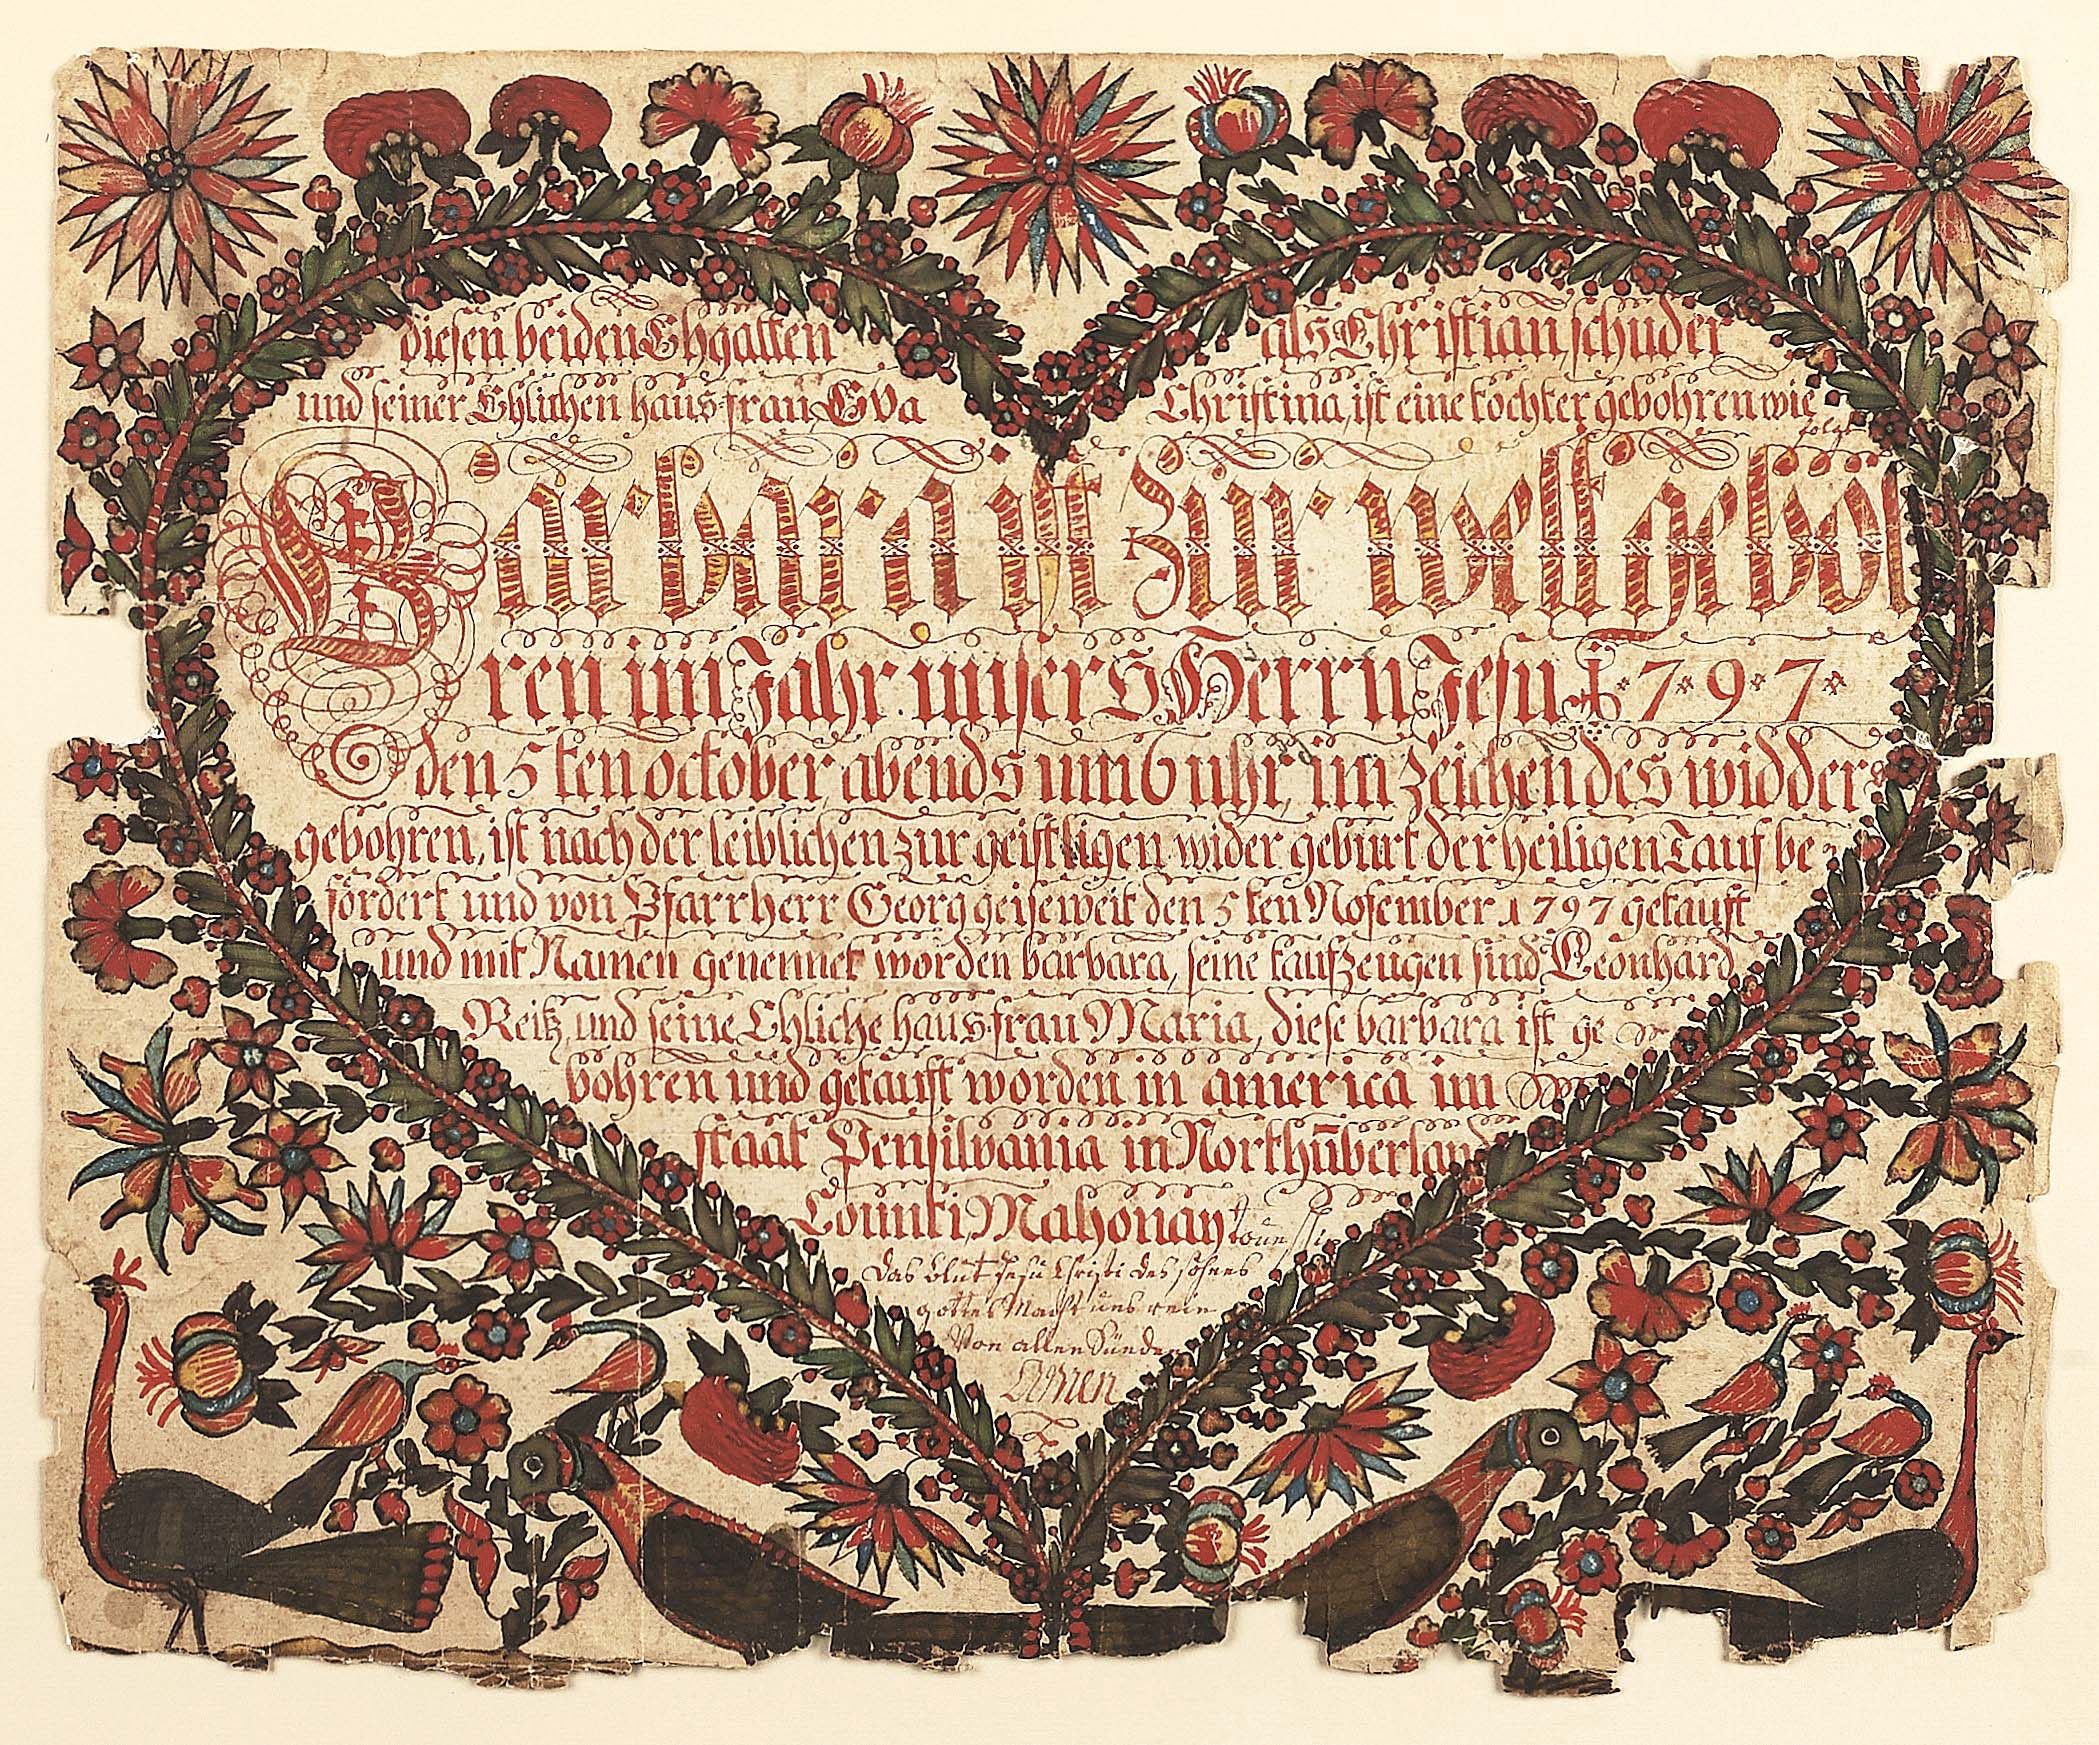 diesen beiden Ehgatten als Christian schuder
und seiner Ehlichen haus-frau Eva Christina, ist eine tochter gebohren wie
folgt
Barbara ist zur welt geboh
ren im Jahr unsers Herrn Jesu 1797
den 5ten october, abends um 6 uhr, im zeichen des widders
gebohren, ist nach der leiblichen zur geistligen wider geburt der heiligen Tauf be-
fördert und von Pfarrherr Georg geiseweit den 5ten Nofember 1797 getauft
und mit Namen genennet worden barbara, seine taufzeugen sind Leonhard
Reitz, und seine Ehliche haus-frau Maria, diese barbara ist ge
bohren und getauft worden in america im
staat Pensilvania in Northu̅berland
Counti, Mahonay
das blut Jesu Christi des sohnes
gottes Macht uns rein
Von allen Sünden
Amen